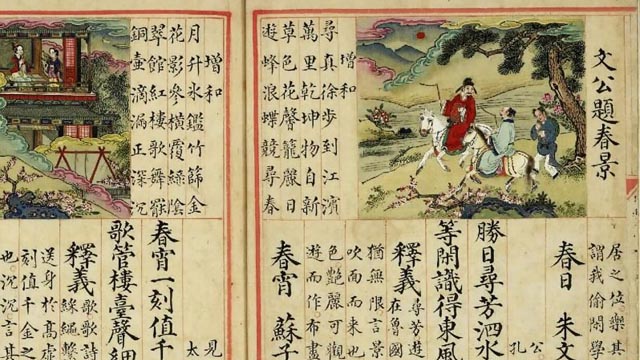 文公題春景
增和
尋真徐步到江濱
萬里乾坤物自新
草色花馨籠麗日
遊蜂浪蝶競尋春
居之位樂其
謂我偷閒學
春日 朱文
公
孔
勝日尋芳泗水
等閒識得東風
釋義 尋芳遊
在魯國
猶無限言景
吹而而來也
色艷麗可觀
遊而作布畫
春宵 蘇子
增和
月升氷鑑竹篩金
花影參橫覆綠陰
翠館紅樓歌舞罷
銅壺滴漏正深沉
見
太
春宵一刻值千
歌管樓臺聲細
釋義 歌歌詩
絲繩繫
送身於高處
刻值千金之
也沉沉言其